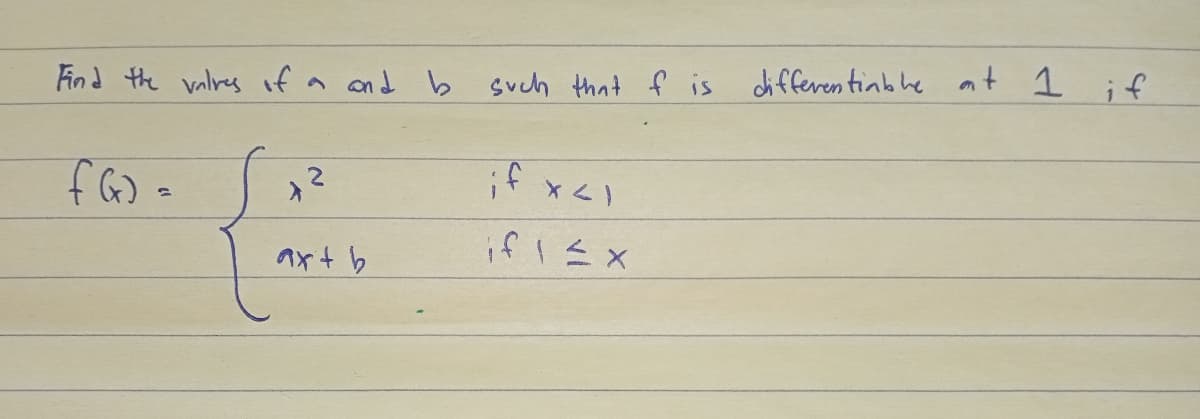 Find the values of a and b such that f is differentiable at 1 if
f(x) = { x² if x < 1
ax + b if 1 ≤ x